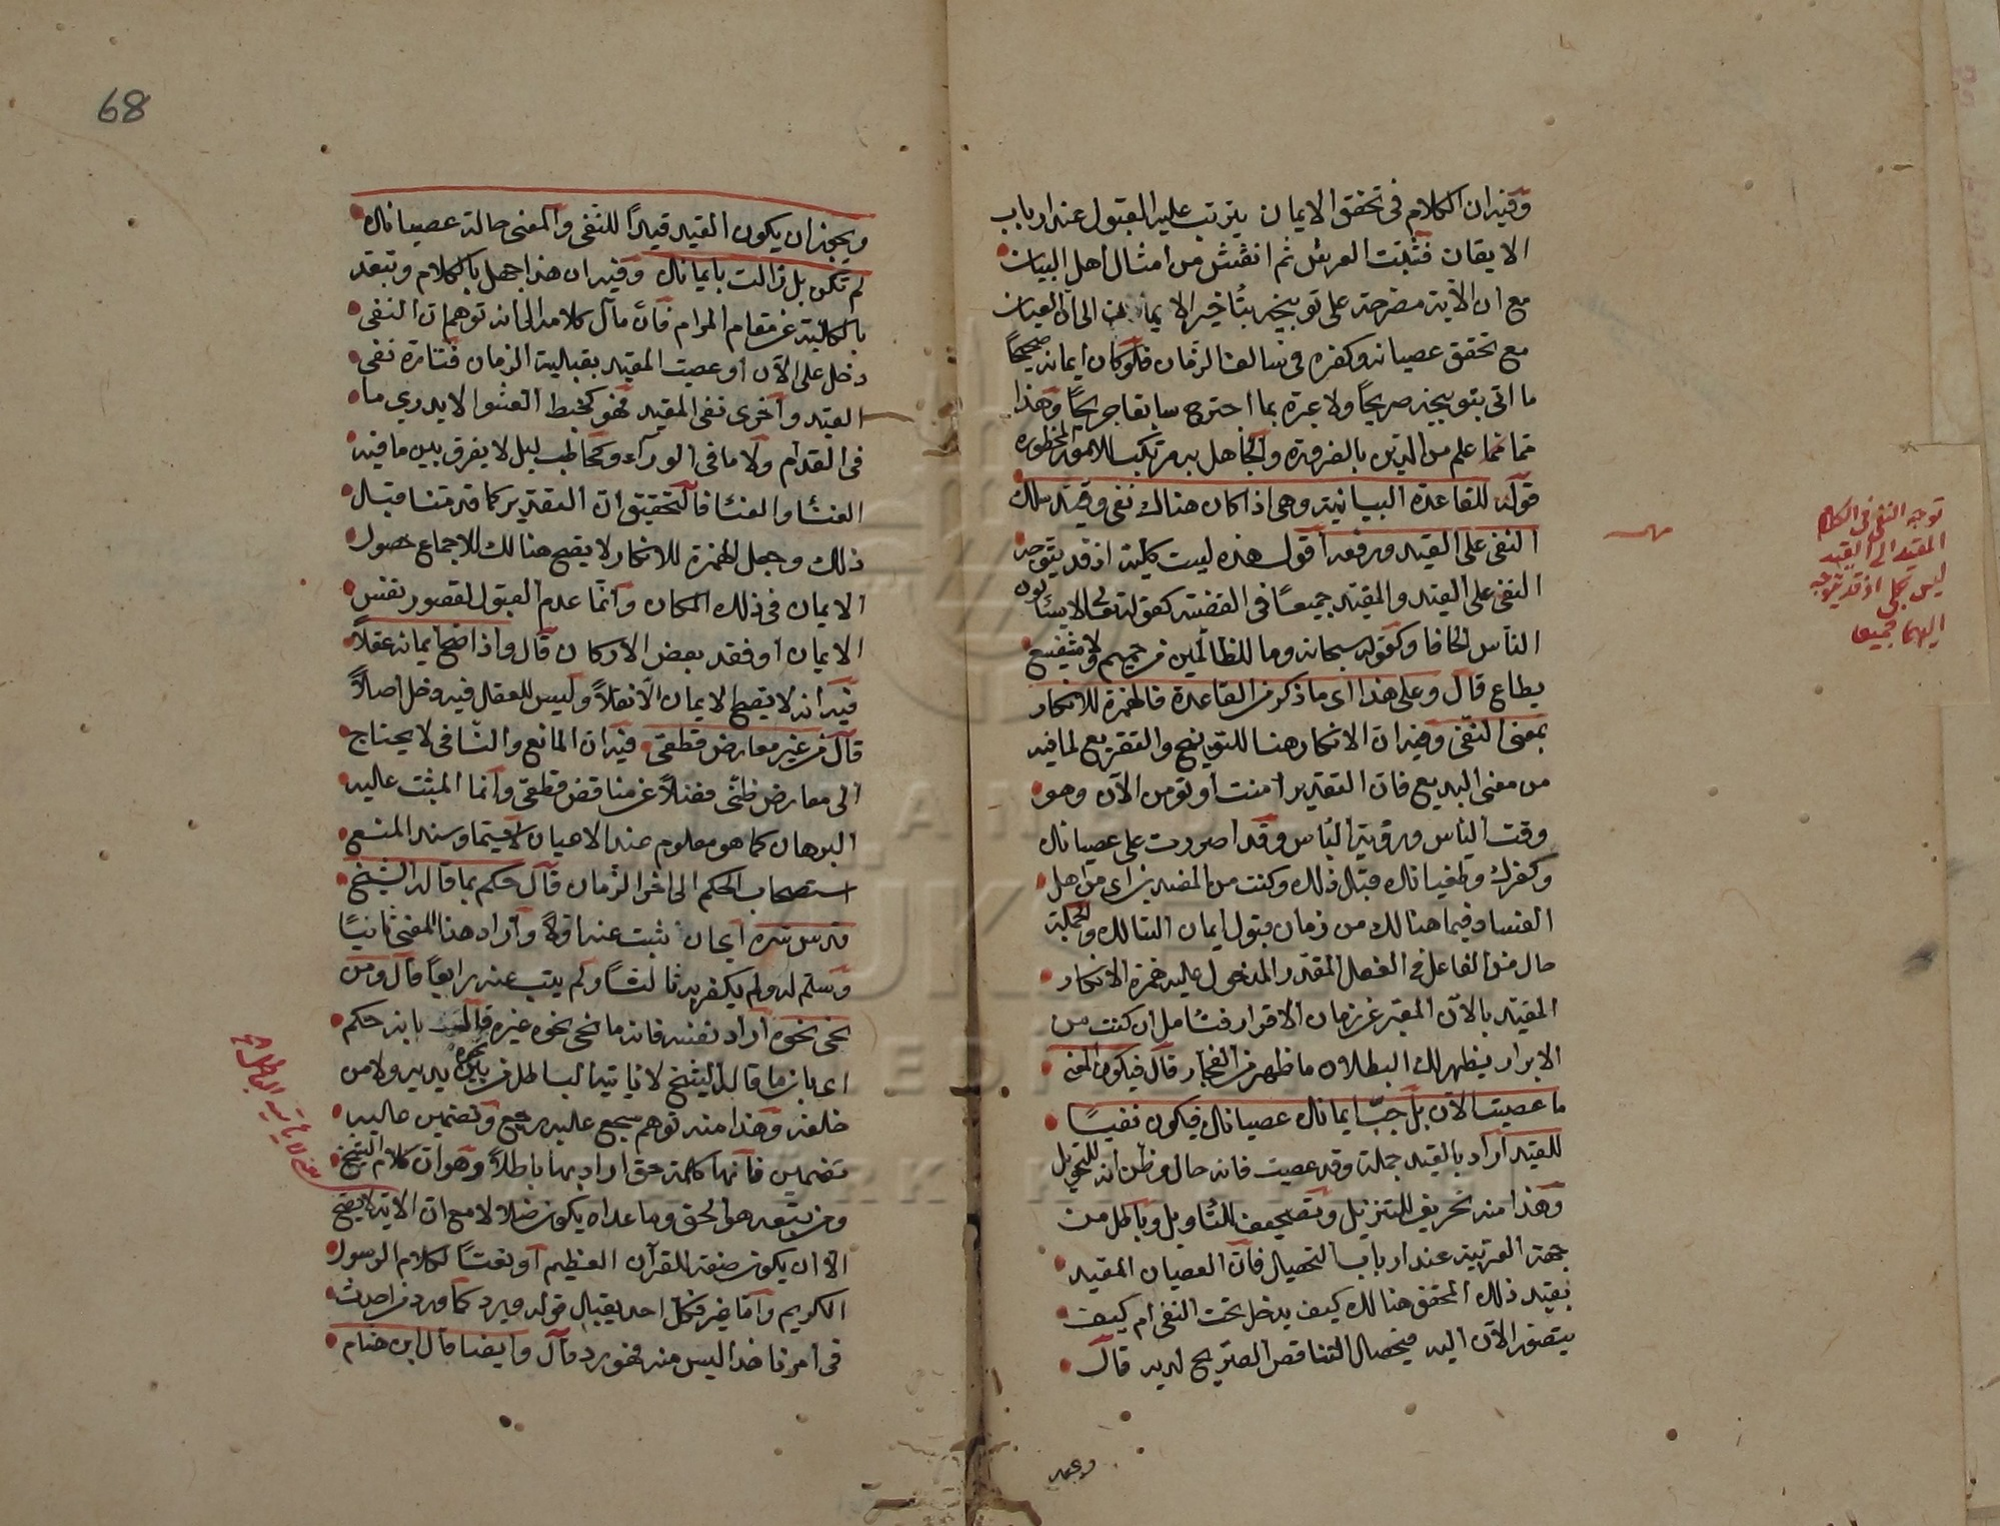 وفيه ان الكلام في تحقق الايمان يترتب عليه القبول عند ارباب
الايقان فثبت العرش ثم انقش من امثال اهل البيان
مع ان الآية مصرحة على توبيخه بتأخير الايمان الى الآن العيان
مع تحقق عصيانه وكفره في سالف الزمان فلو كان ايمانه صحيحًا
ما اتى بتوبيخه صريحًا ولا عبرة بما اجترح سابقا جريحًا وهذا
مما علم من الدين بالضرورة والجاهل به مرتكب للامور المحظورة
قوله للقاعدة البيانية وهي اذا كان هناك نفي وقيد سلك
النفي على القيد ورفعه اقول هذه ليست كلية اذ قد يتوجه
النفي على القيد والمقيد جميعًا في القضية كقوله تعالى لا يسألون
الناس الحافا وكقوله سبحانه وما للظالمين من حميم ولا شفيع
يطاع قال وعلى هذا اى ما ذكر من القاعدة فالهمزة للانكار
بمعنى النفي وفيه ان الانكار هنا للتوبيخ والتقريع لما فيه
من معنى البديع فان التقدير امنت او تؤمن الآن وهو
وقت اليأس ورؤية البأس وقد اصررت على عصيانك
وكفرك وطغيانك قبل ذلك وكنت من المفسدين اى من اهل
الفساد فيما هنالك من زمان قبول ايمان السالك والجملة
حال من الفاعل في الفعل المقدر المدخول عليه همزة الانكار
المقيد بالآن المعبر عن زمان الاقرار فتأمل ان كنت من
الابرار يظهر لك البطلان ما ظهر من الفجار قال فيكون المعنى
ما عصيت الآن بل جبّ ايمانك عصيانك فيكون نفيًا
للقيد اراد بالقيد جملة وقد عصيت فانه حال وظن انه للتحويل
وهذا منه تحريف للتنزيل وتصحيف للتأويل وباطل من
جهة العربية عند ارباب التحصيل فان العصيان المقيد
بقيد ذلك المحقق هنالك كيف يدخل تحت النفي ام كيف
يتصور الآن اليه فيحصل التناقص الصريح لديه قال
توجه النفي في الكلام
المقيد الى القيد
ليس بكلي اذ قد يتوجه
اليهما جميعا
68
ويجوز ان يكون القيد قيدًا للنفي والمعنى حالة عصيانك
لم تكن بل زالت بايمانك وفيه ان هذا جهل بالكلام وتبعد
بالكلية عن مقام المرام فان مآل كلامه الى انه توهم ان النفي
دخل على الآن او عصيت المقيد بقبلية الزمان فتارة نفى
القيد واخرى نفى المقيد فهو كخبط العشوا لا يدري ما
في القدام ولا ما في الوراء وكحاطب ليل لا يفرق بين ما فيه
الغشا والغثا فالتحقيق ان التقدير كما قدمنا قبل
ذلك وجعل الهمزة للانكار لا يصح هنالك للاجماع حصول
الايمان في ذلك المكان وانما عدم القبول لقصور نفس
الايمان او فقد بعض الاركان قال واذا صح ايمانه عقلاً
فيه انه لا يصح الايمان الا نقلاً وليس للعقل فيه دخل اصلاً
قال من غير معارض قطعي فيه ان المانع والنافي لا يحتاج
الى معارض ظني فضلاً عن مناقض قطعي وانما المثبت عليه
البرهان كما هو معلوم عند الاعيان لا سيما وسند المنع
استصحاب الحكم الى اخر الزمان قال حكم بما قاله الشيخ
قدس سره اى ان ثبت عنه اولاً واراد هذا المعنى ثانيًا
وسلم له ولم يكفر به ثالثًا ولم يتب عنه رابعًا قال ومن
نحى نحوه اراد نفسه فانه ما نحى نحوه غيره بانه حكم
اى بان ما قاله الشيخ لا يأتيه الباطل من بين يديه ولا من
خلفه وهذا منه توهم سجع عليه رجع وتضمين حاليه
تضمين فانها كلمة حق اراد بها باطلاً وهو ان كلام الشيخ
ومن تبعه هو الحق وما عداه يكون ضلالا مع ان الآية لا يصح
الا ان يكون صفة للقرآن العظيم او نعتًا لكلام الرسول
الكريم واما غيره فكل احد يقبل قوله ويرد كما ورد من احدث
في امرنا هذا ليس منه فهو رد قال وايضا قال ابن هشام